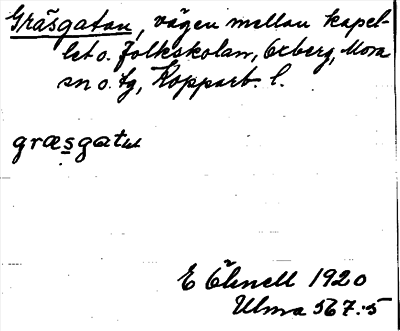 Gräsgatan, vägen mellan kapel-
let o. folkskolan, Oxberg, Mora
sn o. tg, Kopparb. l.
græsgatɩ
E Öhnell 1920
Ulma 567:5